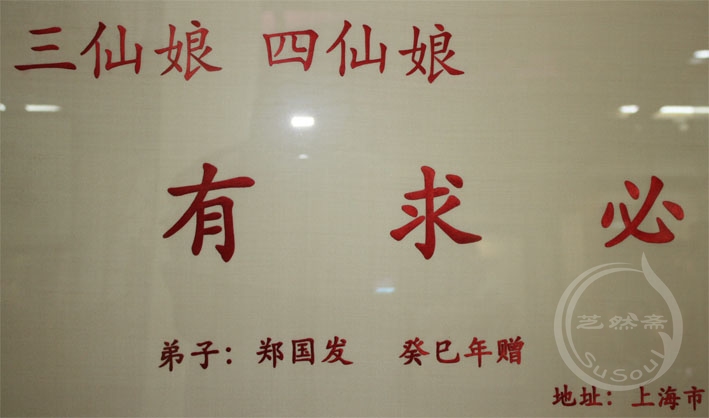 三仙娘 四仙娘
有求必
弟子：郑国发 癸巳年赠
地址：上海市
芝然斋
SuSoul